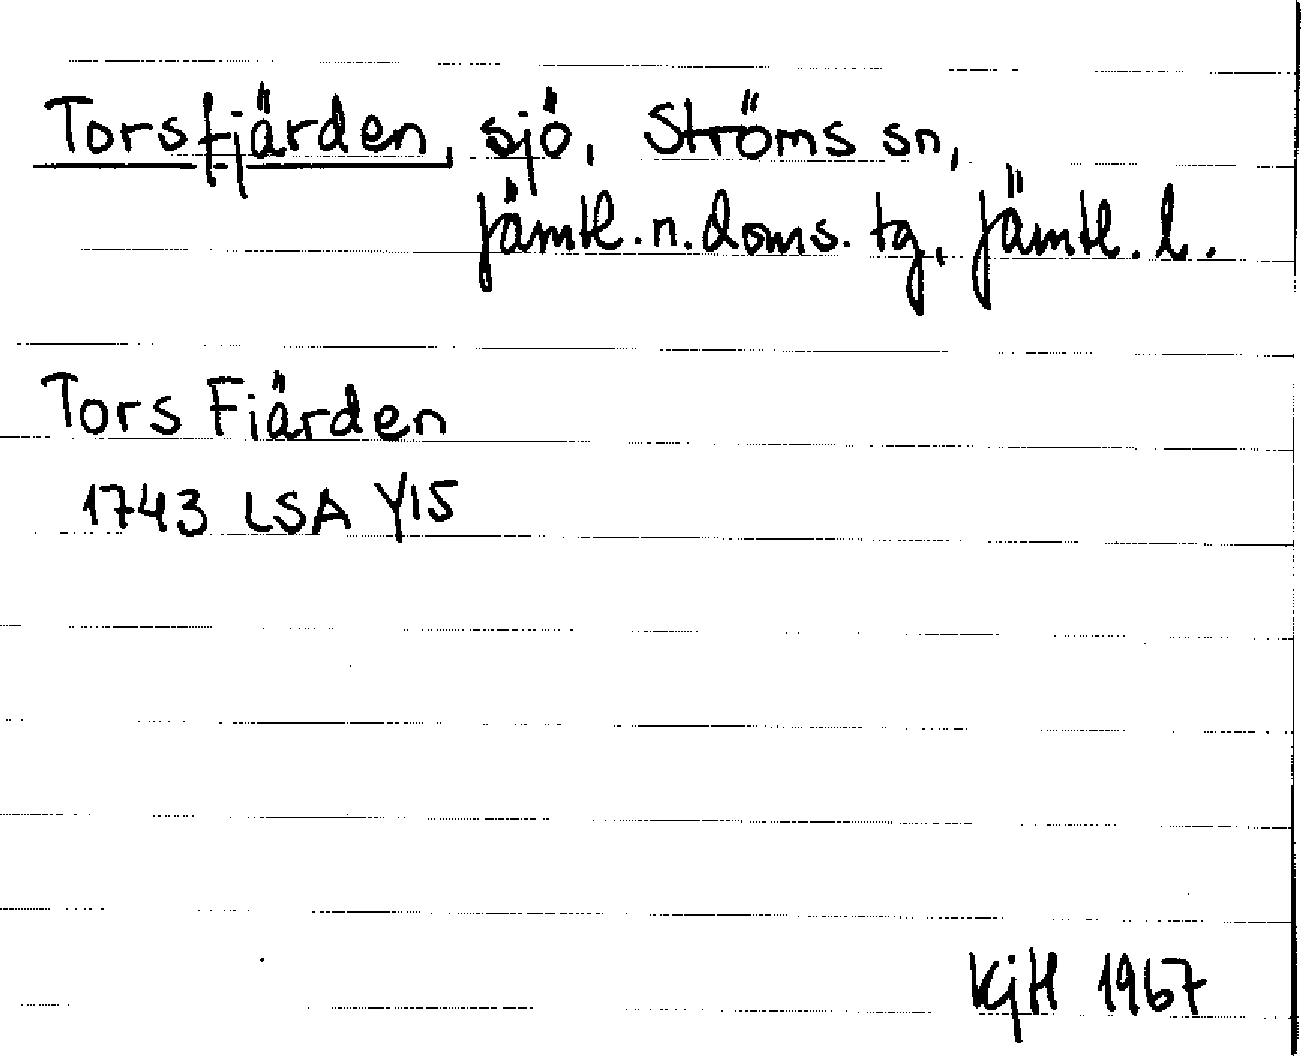 Torsfjärden, sjö, Ströms sn,
Jämtl. n. doms. tg, Jämtl. l.
Tors Fiärden
1743 LSA Y15
KjH 1967